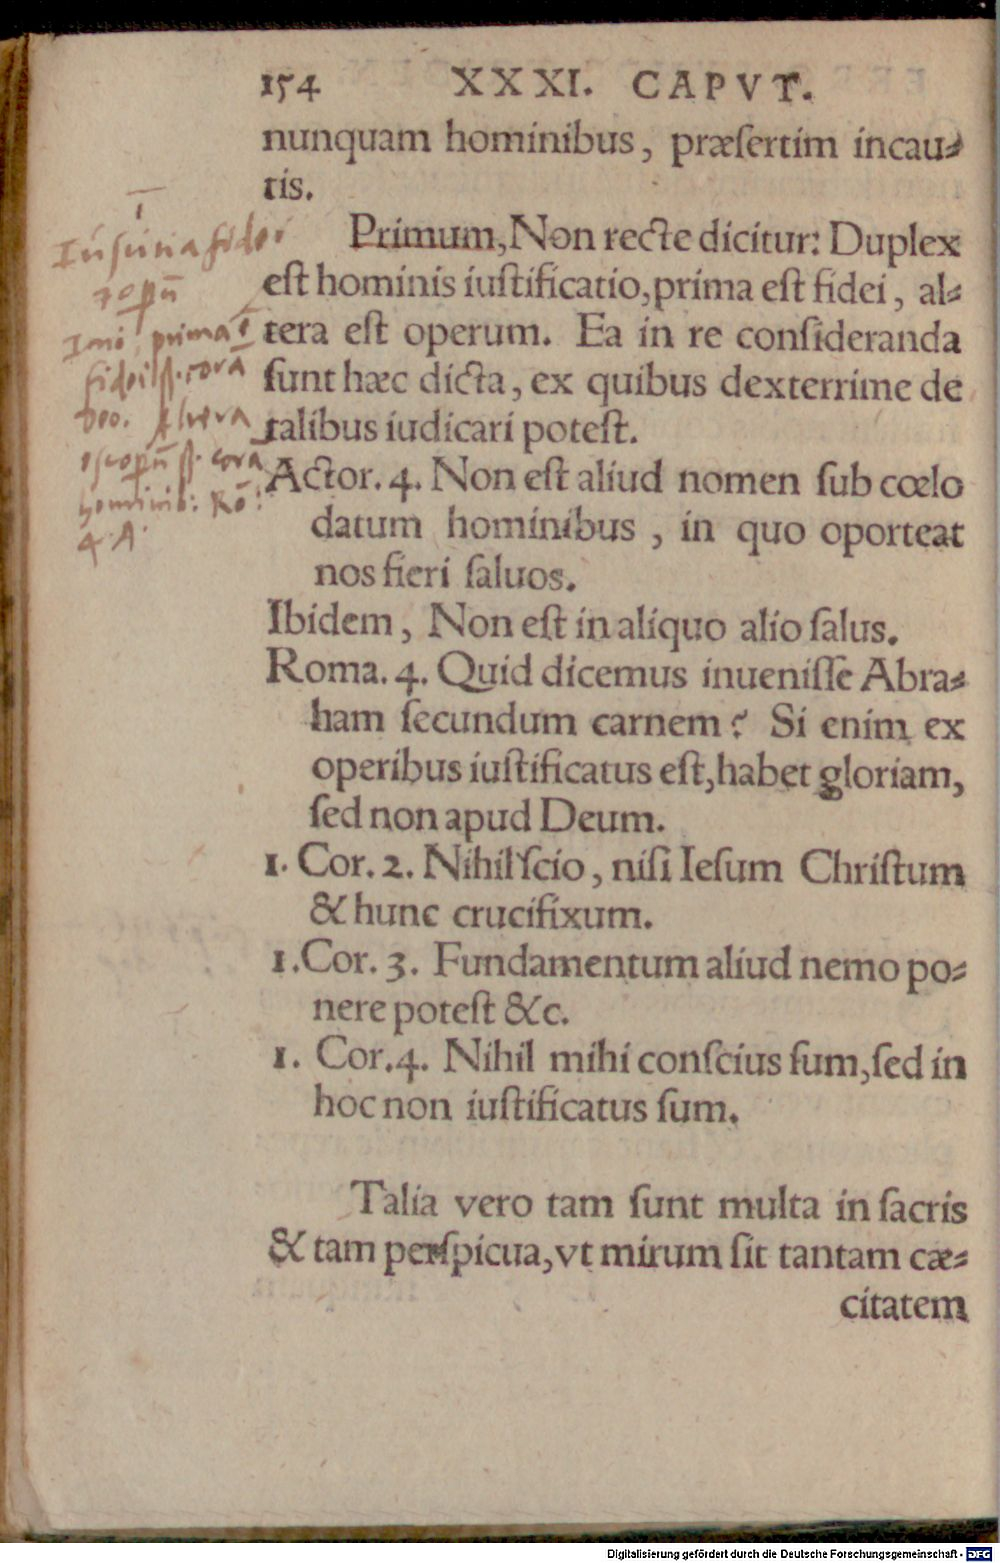 154 XXXI. CAPVT.
nunquam hominibus, præſertim incau⸗
tis.
Primum, Non recte dicitur: Duplex
eſt hominis iuſtificatio, prima eſt fidei, al⸗
tera eſt operum. Ea in re conſideranda
ſunt hæc dicta, ex quibus dexterrime de
talibus iudicari poteſt.
Actor. 4. Non eſt aliud nomen ſub cœlo
datum hominibus, in quo oporteat
nos fieri ſaluos.
Ibidem, Non eſt in aliquo alio ſalus.
Roma. 4. Quid dicemus inueniſſe Abra⸗
ham ſecundum carnem? Si enim ex
operibus iuſtificatus eſt, habet gloriam,
ſed non apud Deum.
1. Cor. 2. Nihil ſcio, niſi Ieſum Chriſtum
& hunc crucifixum.
1. Cor. 3. Fundamentum aliud nemo po⸗
nere poteſt &c.
1. Cor. 4. Nihil mihi conſcius ſum, ſed in
hoc non iuſtificatus ſum.
Talia vero tam ſunt multa in ſacris
& tam perſpicua, vt mirum ſit tantam cæ⸗
citatem
prima
fidei corā
Deo. Altera
corā
Rō:
4. A.
Digitalisierung gefördert durch die Deutsche Forschungsgemeinschaft - DFG